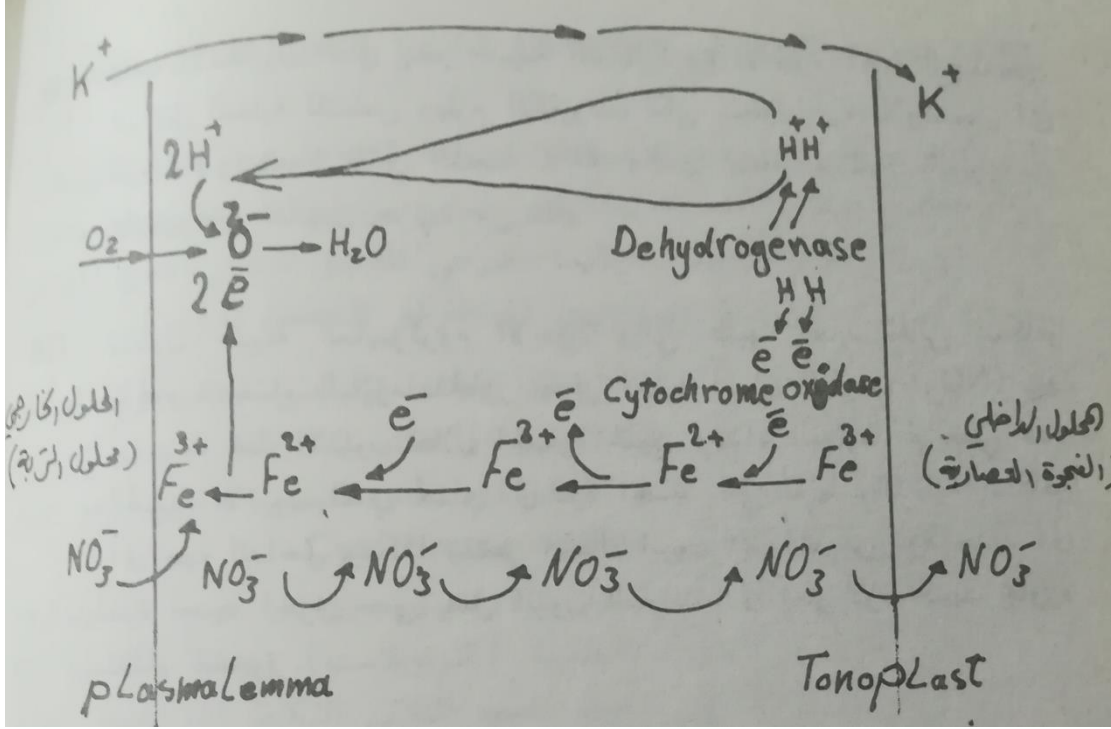 K⁺ K⁺
2H⁺ H⁺H⁺
O₂ O²⁻ H₂O Dehydrogenase
2 e⁻ H H
e⁻ e⁻
Cytochrome oxidase
المحلول الخارجي
(محلول التربة)
e⁻ e⁻ e⁻
Fe³⁺ Fe²⁺ Fe³⁺ Fe²⁺ Fe³⁺
المحلول الداخلي
(الفجوة العصارية)
NO₃⁻ NO₃⁻ NO₃⁻ NO₃⁻ NO₃⁻ NO₃⁻
plasmalemma Tonoplast